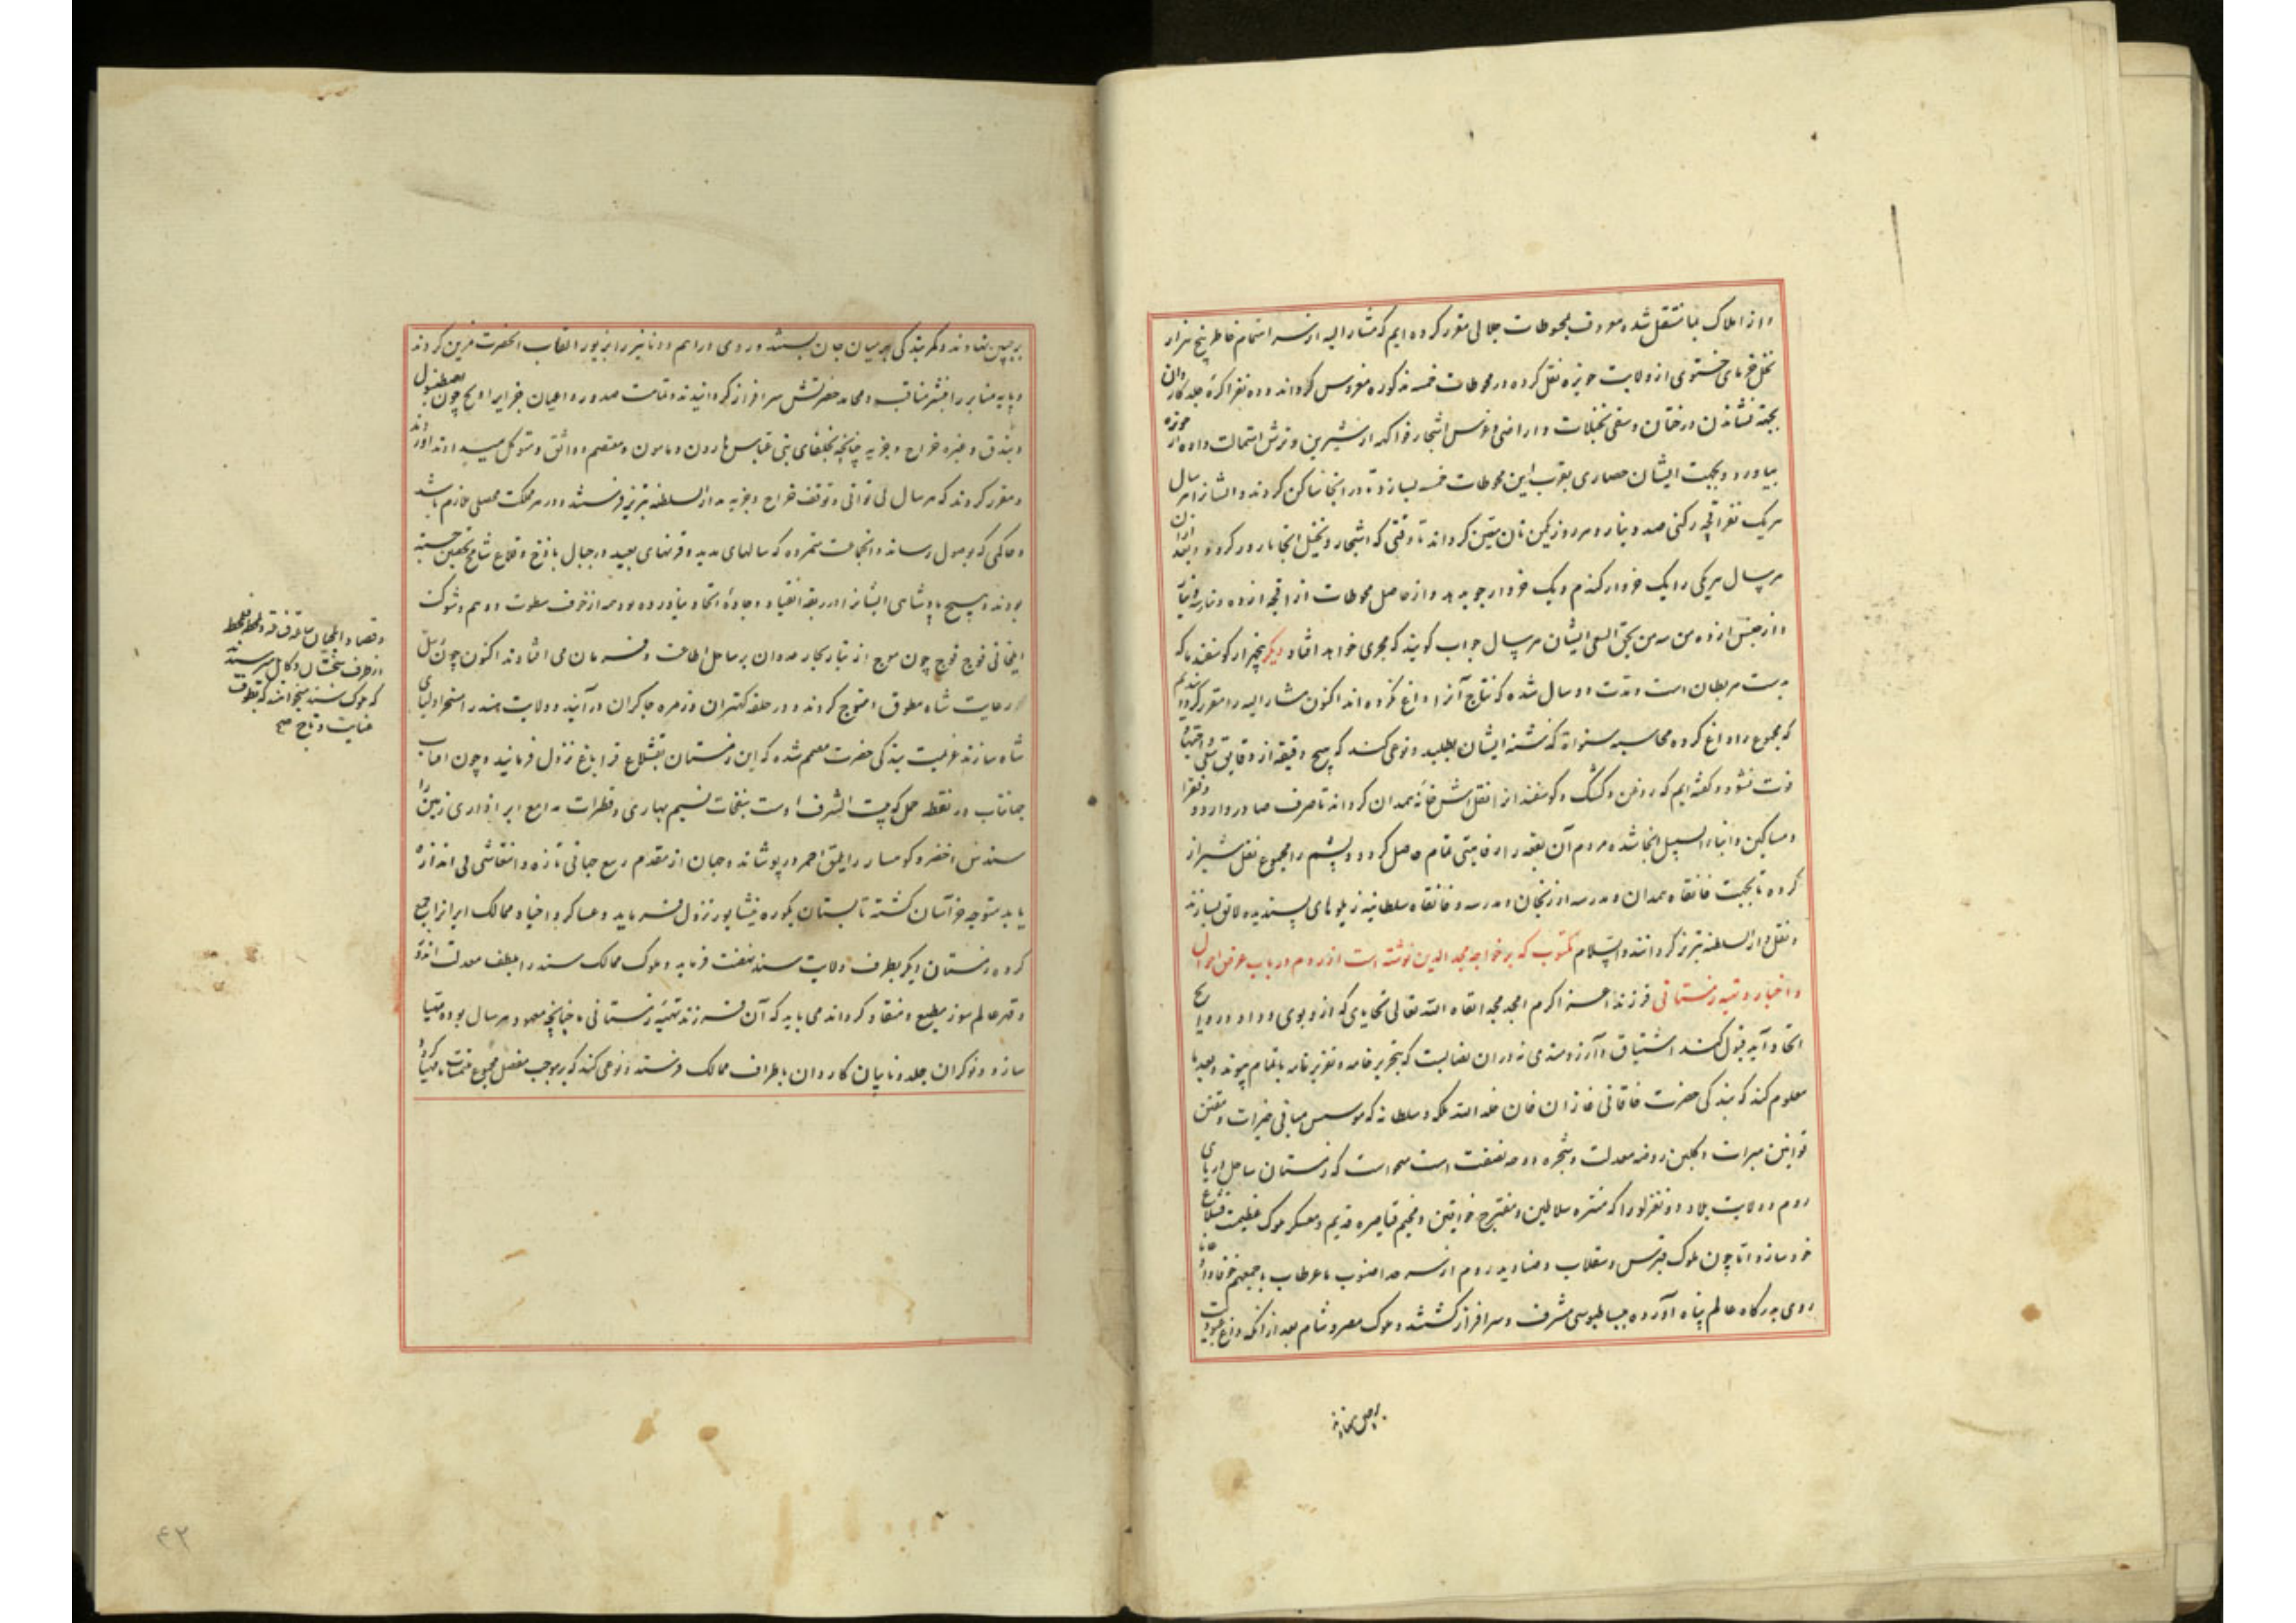 و از املاک بما منتقل شده معروف بمحوطات جلالی مقرر کرده ایم که مشار الیه از سر اهتمام خاطر پنج هزار
نخل خرمای خستوی از ولایت حویزه نقل کرده در محوطات خمسه مذکوره مغروس کرداند و ده نفر اکره جلد کاردان
بجهة نشاندن درختان و سقی نخیلات و اراضی و غرس اشجار فواکه از شیرین و ترش استمالت داده از حویزه
بیاورد و بجهت ایشان حصاری بقرب این محوطات خمسه بسازد تا در انجا ساکن کردند و ایشانرا هر سال
هر یک نفر اقچه رکنی صد دینار و هر روز یکمن نان متعین کرداند تا وقتی که اشجار و نخیل انجا بارور کردد و بعد ازان
هر سال هر یکی را یک خروار کندم و یک خروار جو بدهد و از حاصل محوطات از اقچه از ده دینار سه دینار
و از جنس از ده من سه من بحق السعی ایشان هر سال جواب کویند که مجری خواهد افتاد دیکر پنجهزار کوسفند ما که
بدست مربطان است و مدت دو سال شده که نتاج آنرا داغ نکرده اند اکنون مشار الیه را مقرر کردیم
که مجموع را داغ کرده محاسبه سنوات کذشته ایشان بطلبد و نوعی کند که هیچ دقیقه از دقایق سعی و اجتهاد
فوت نشود و کفته ایم که روغن و کشک و کوسفند انرا نقل شش خانه همدان کرداند تا صرف صادر و وارد و فقرا
و مساکین و ابناء السبیل انجا شده مردم آن بقعه را رفاهیتی تمام حاصل کردد و پشم را مجموع نقل شیراز
کرده تا بجهت خانقاه همدان و مدرسه ارزنجان و مدرسه و خانقاه سلطانیه زیلوهای پسندیده لایق بسازند
و نقل دار السلطنه تبریز کردانند و السلام مکتوب که بر خواجه مجد الدین نوشته است از روم در باب عرض احوال
و اخبار و تهیه زمستانی فرزند اعز اکرم امجد مجد ابقاه الله تعالی تحایای که ازو بوی وداد و روایح
اتحاد آید قبول کند اشتیاق و آرزومندی نه دران نصابست که بتحریر خامه و تقریر نامه باتمام پیوندد بعدها
معلوم کند که بندکی حضرت خاقانی غازان خان خلد الله ملکه و سلطانه که موسس مبانی خیرات و مقنن
قوانین مبرات و کلبن روضه معدلت و شجره دوحه نصفت است میخواست که زمستان ساحل دریای
روم و ولایت بلاد دونغزلو را که متنزه سلاطین و مقترح خواقین و مخیم قیاصره قدیم و معسکر ملوک عظیمست قشلاغ
خود سازد اما چون ملوک قبرس و سقلاب و صنادید روم از سرحد اصنوب تا عرطاب باجمعهم خوفا و رجاءا
روی بدرکاه عالم پناه آورده ببساط بوسی مشرف و سرافراز کشتند و ملوک مصر و شام بعد از انک داغ عبودیت
بر جبین نهادند و کمر بندکی بر میان جان بستند و روی دراهم و دنانیر را بزیور القاب انحضرت مزین کردند
و پایه منابر را بنشر مناقب و محامد حضرتش سرافراز کردانیدند و تمامت صدور و اعیان جزایر اویج چون اصطنبول
و بندق و غیره خراج و جزیه چنانچه بخلفای بنی عباس هارون و مامون و معتصم و واثق و متوکل میدادند آوردند
و مقرر کردند که هر سال بی توانی و توقف خراج و جزیه بدار السلطنه تبریز فرستند و در هر مملکت محصلی ملازم باشد
و حاکمی که بوصول رساند و انجماعت متمرده که سالهای مدید و قرنهای بعید در جبال باذخ و قلاع شامخ تحصین جسته
بودند و هیچ پادشاهی ایشانرا در ربقه انقیاد و جاده اتحاد نیاورده بود همه از خوف سطوت و وهم و شوکت
ایلخانی فوج فوج چون موج از تیار بحار عدوان بر ساحل اطاعت و فرمان می افتادند اکنون چون ملل
رعایت شاه مطوق و متوج کردند و در حلقه کهتران و زمره چاکران در آیند و ولایت هند را مسخر اولیای
شاه سازند عزیمت بندکی حضرت مصمم شده که این زمستان بقشلاغ قراباغ نزول فرمایند و چون آفتاب
جهانتاب در نقطه حمل که بیت الشرف اوست بنفخات نسیم بهاری و قطرات مدامع ابر آذاری زمین را
سندس اخضر و کوهسار را یلمق احمر در پوشاند و جهان از مقدم ربیع حیاتی تازه و انتعاشی بی اندازه
یابد متوجه خراسان کشته تابستان بکوره نیشابور نزول فرماید و عساکر و اجناد ممالک ایرانرا جمع
کرده زمستان دیکر بطرف ولایت سند نهضت فرماید و ملوک ممالک سند را بلطف معدلت اندوز
و قهر عالم سوز مطیع و منقاد کرداند می باید که آن فرزند تهنیه زمستانی ما چنانچه معهود هر سال بوده مهیا
سازد و نوکران جلد و نایبان کاردان باطراف ممالک فرستد و نوعی کند که بر موجب مفصل مجموع ملتمسات ما مهیا کردد
و قصاد و ایلچیان
از طرف
که ملوک سند میخواهند که بطرف
عنایت و تاج صح
بر جبین نهادند
۴۲